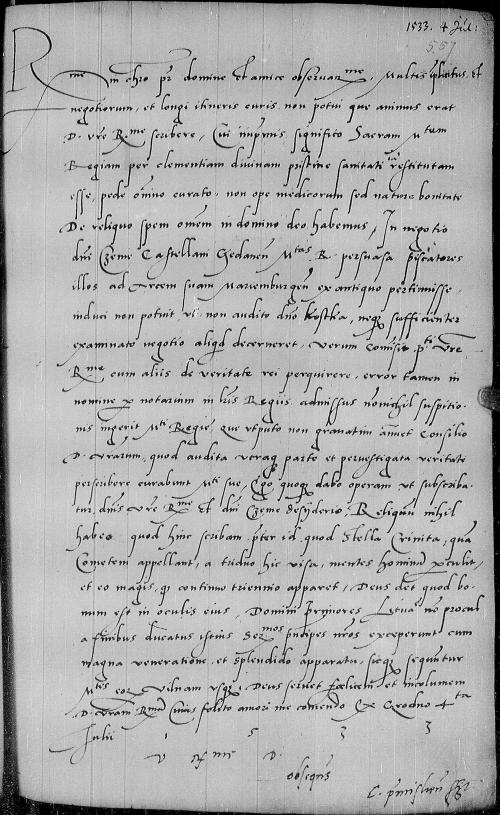 1533. 4 Jul:
557
R
me in chro pr domine et amice observanme. Multiplicitus et
negotiorum, et longi itineris curis non potui que animus erat
D. vre Rme scribere, Cui inprimis significo Sacram Mtem
Regiam per clementiam divinam pristine sanitati restitutam
esse, pede omnino curato. non ope medicorum sed nature bonitate
De reliquo spem omnem in domino deo habemus, In negotio
dni Czeme Castellani Gedanen Mtas R. persuasa piscatores
illos ad Arcem suam Marienburgen ex antiquo pertinuisse.
induci non potuit, ut non audito dno Kostka, neque sufficienter
examinato negotio aliquid decerneret, verum Comisit pti vre
Rme cum aliis de veritate rei perquirere, error tamen in
nomine per notarium in lris Regiis admissus nonnihil suspitio-
nis ingerit Mti Regie, que ut puto non gravatim annuet consilio
D. vrarum, quod audita utraque parte et pervestigata veritate
perscribere curabunt Mti sue, Ego quoque dabo operam ut subscriba-
tur, dnis vre Rme et dni Czeme desyderio. Reliquum nihil
habeo quod hinc scribam, preter id quod stella Crinita, quam
Cometem appellant, a triduo hic visa, mentes hominum perculit,
et eo magis, quod continuo triennio apparet, Deus det quod bo-
num est in oculis eius, Domini Primores Lituanie non procul
a finibus ducatus istius Sermos principes nros exceperunt cum
magna veneratione, et splendido apparatu, sicque sequuntur
Mtes eorum Vilnam usque, Deus servet felicem et incolumem
D. vram Rmam cuius solito amori me comendo Ex Grodno 4ta
Julii 1 5 3 3
V Rme D.
obsequens